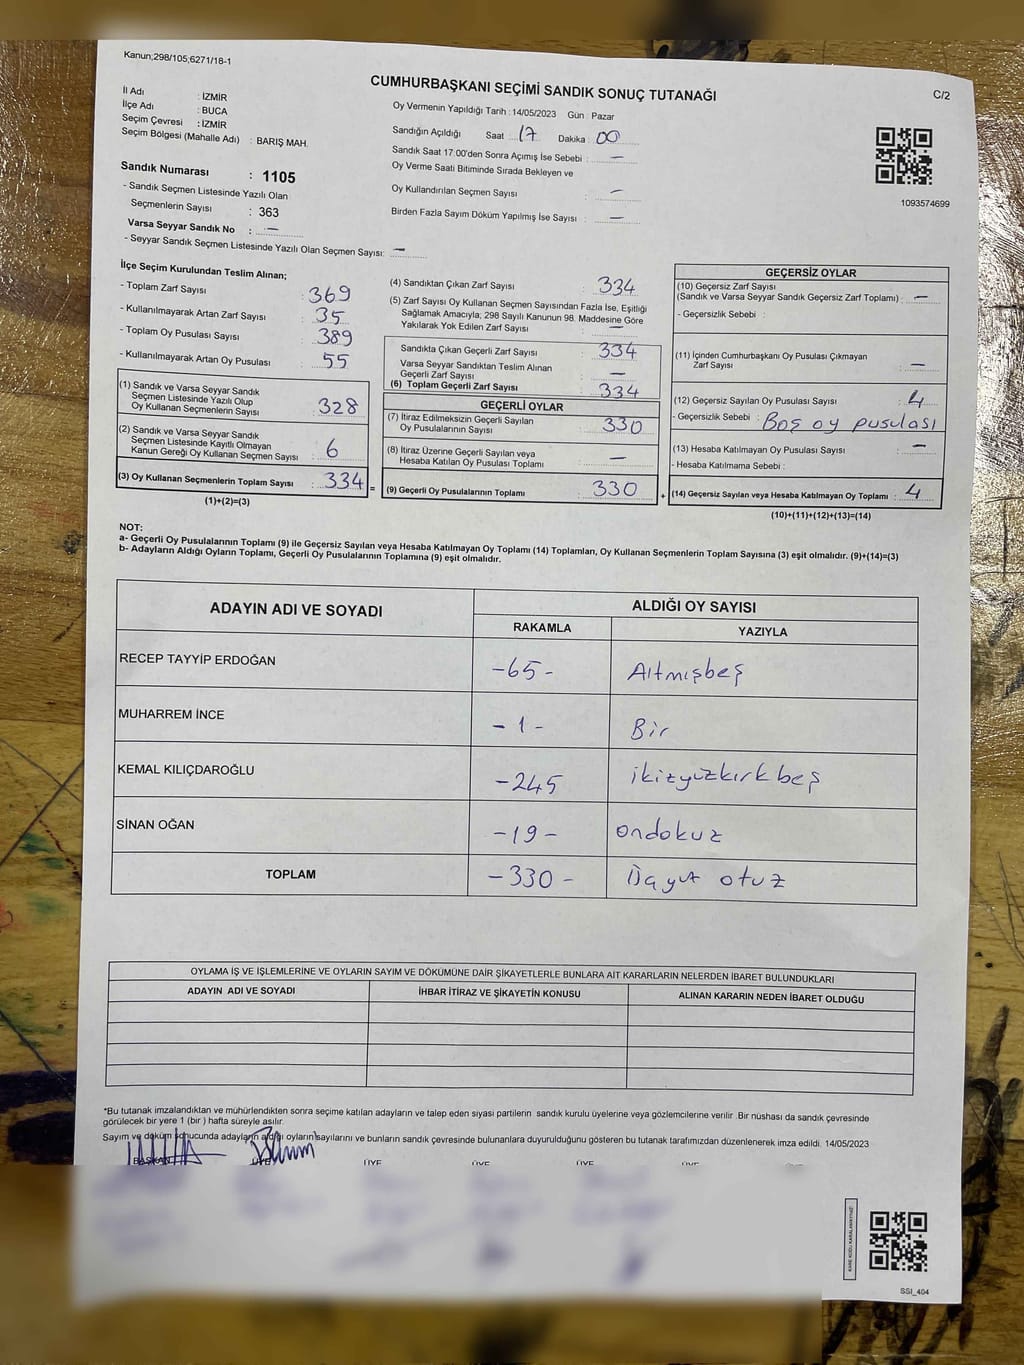 Kanun;298/105;6271/18-1
CUMHURBAŞKANI SEÇİMİ SANDIK SONUÇ TUTANAĞI
C/2
İl Adı : İZMİR
İlçe Adı : BUCA
Seçim Çevresi : İZMİR
Seçim Bölgesi (Mahalle Adı) : BARIŞ MAH.
Oy Vermenin Yapıldığı Tarih : 14/05/2023 Gün : Pazar
Sandığın Açıldığı Saat : 17 Dakika : 00
Sandık Saat 17:00'den Sonra Açımış İse Sebebi : —
Oy Verme Saati Bitiminde Sırada Bekleyen ve
Oy Kullandırılan Seçmen Sayısı : —
Birden Fazla Sayım Döküm Yapılmış İse Sayısı : —
1093574699
Sandık Numarası : 1105
- Sandık Seçmen Listesinde Yazılı Olan
Seçmenlerin Sayısı : 363
Varsa Seyyar Sandık No : —
- Seyyar Sandık Seçmen Listesinde Yazılı Olan Seçmen Sayısı: —
İlçe Seçim Kurulundan Teslim Alınan;
- Toplam Zarf Sayısı : 369
- Kullanılmayarak Artan Zarf Sayısı : 35
- Toplam Oy Pusulası Sayısı : 389
- Kullanılmayarak Artan Oy Pusulası : 55
(1) Sandık ve Varsa Seyyar Sandık
Seçmen Listesinde Yazılı Olup
Oy Kullanan Seçmenlerin Sayısı : 328
(2) Sandık ve Varsa Seyyar Sandık
Seçmen Listesinde Kayıtlı Olmayan
Kanun Gereği Oy Kullanan Seçmen Sayısı : 6
(3) Oy Kullanan Seçmenlerin Toplam Sayısı : 334 =
(1)+(2)=(3)
(4) Sandıktan Çıkan Zarf Sayısı : 334
(5) Zarf Sayısı Oy Kullanan Seçmen Sayısından Fazla İse, Eşitliği
Sağlamak Amacıyla; 298 Sayılı Kanunun 98. Maddesine Göre
Yakılarak Yok Edilen Zarf Sayısı : —
Sandıkta Çıkan Geçerli Zarf Sayısı : 334
Varsa Seyyar Sandıktan Teslim Alınan
Geçerli Zarf Sayısı : —
(6) Toplam Geçerli Zarf Sayısı : 334
GEÇERLİ OYLAR
(7) İtiraz Edilmeksizin Geçerli Sayılan
Oy Pusulalarının Sayısı : 330
(8) İtiraz Üzerine Geçerli Sayılan veya
Hesaba Katılan Oy Pusulası Toplamı : —
(9) Geçerli Oy Pusulalarının Toplamı : 330 +
GEÇERSİZ OYLAR
(10) Geçersiz Zarf Sayısı
(Sandık ve Varsa Seyyar Sandık Geçersiz Zarf Toplamı) : —
- Geçersizlik Sebebi :
(11) İçinden Cumhurbaşkanı Oy Pusulası Çıkmayan
Zarf Sayısı : —
(12) Geçersiz Sayılan Oy Pusulası Sayısı : 4
- Geçersizlik Sebebi : Boş oy pusulası
(13) Hesaba Katılmayan Oy Pusulası Sayısı : —
- Hesaba Katılmama Sebebi :
(14) Geçersiz Sayılan veya Hesaba Katılmayan Oy Toplamı : 4
(10)+(11)+(12)+(13)=(14)
NOT:
a- Geçerli Oy Pusulalarının Toplamı (9) ile Geçersiz Sayılan veya Hesaba Katılmayan Oy Toplamı (14) Toplamları, Oy Kullanan Seçmenlerin Toplam Sayısına (3) eşit olmalıdır. (9)+(14)=(3)
b- Adayların Aldığı Oyların Toplamı, Geçerli Oy Pusulalarının Toplamına (9) eşit olmalıdır.
ADAYIN ADI VE SOYADI
ALDIĞI OY SAYISI
RAKAMLA YAZIYLA
RECEP TAYYİP ERDOĞAN -65- Altmışbeş
MUHARREM İNCE -1- Bir
KEMAL KILIÇDAROĞLU -245 ikizyüzkırkbeş
SİNAN OĞAN -19- ondokuz
TOPLAM -330- otuz
OYLAMA İŞ VE İŞLEMLERİNE VE OYLARIN SAYIM VE DÖKÜMÜNE DAİR ŞİKAYETLERLE BUNLARA AİT KARARLARIN NELERDEN İBARET BULUNDUKLARI
ADAYIN ADI VE SOYADI İHBAR İTİRAZ VE ŞİKAYETİN KONUSU ALINAN KARARIN NEDEN İBARET OLDUĞU
*Bu tutanak imzalandıktan ve mühürlendikten sonra seçime katılan adayların ve talep eden siyasi partilerin sandık kurulu üyelerine veya gözlemcilerine verilir .Bir nüshası da sandık çevresinde
görülecek bir yere 1 (bir ) hafta süreyle asılır.
Sayım ve döküm sonucunda adayların aldığı oyların sayılarını ve bunların sandık çevresinde bulunanlara duyurulduğunu gösteren bu tutanak tarafımızdan düzenlenerek imza edildi. 14/05/2023
BAŞKAN ÜYE ÜYE ÜYE ÜYE ÜYE ÜYE
KARE KODU KARALAMAYINIZ
SSI_404